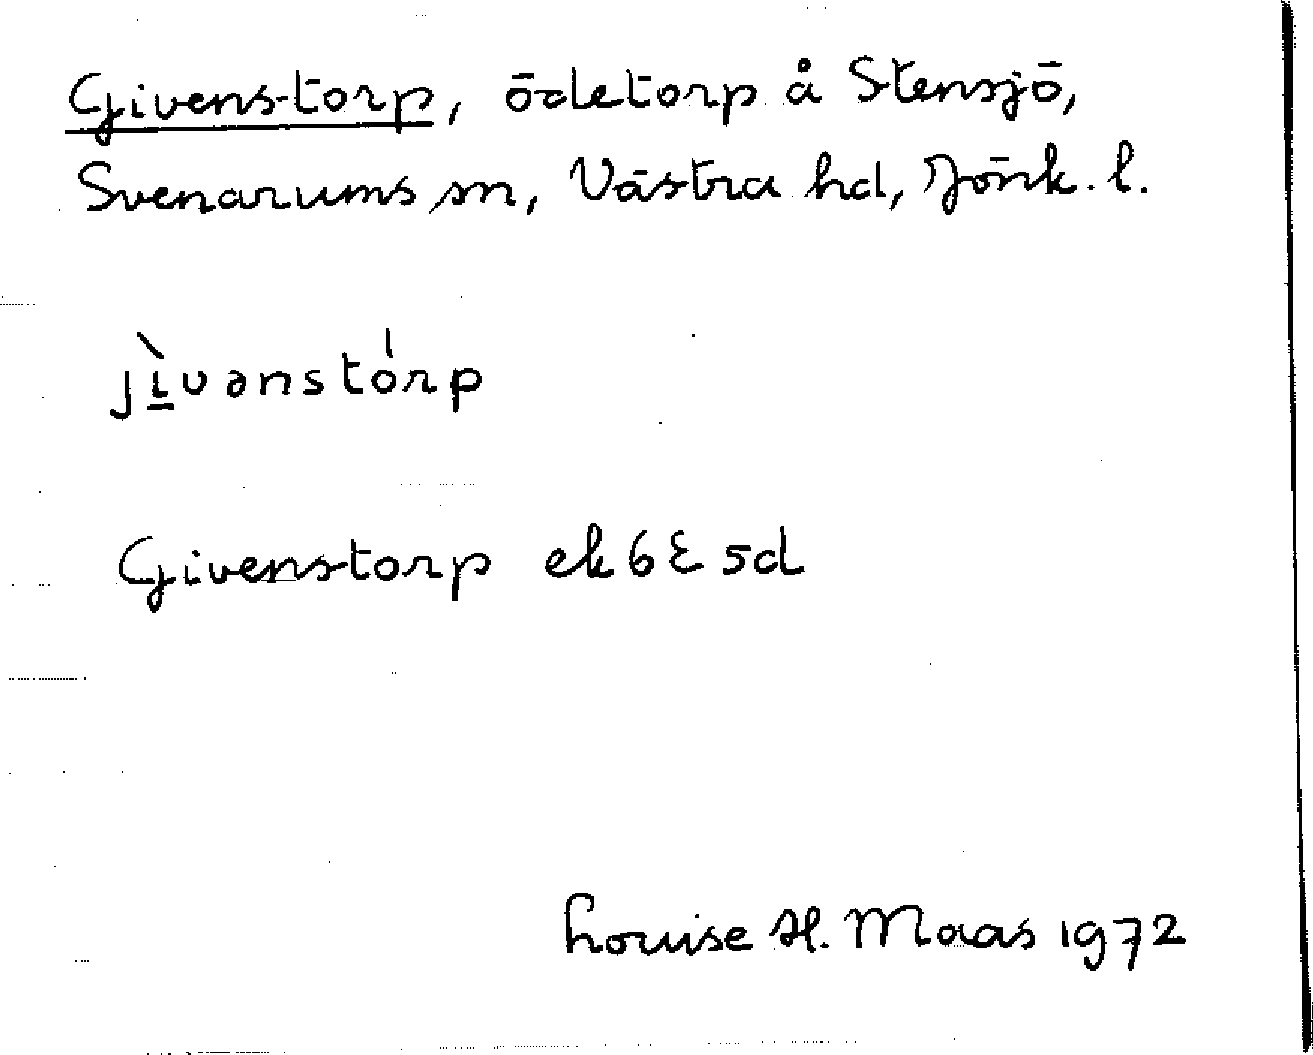 Givenstorp, ödetorp å Stensjö,
Svenarums sn, Västra hd, Jönk. l.
jì̱vənstórp
Givenstorp ek 6E 5d
Louise H. Maas 1972